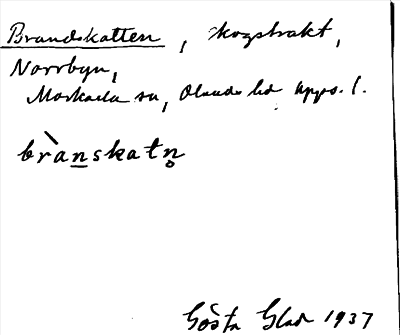 Brandskatten, skogstrakt,
Norrbyn,
Morkarla sn, Olands hd Upps. l.
brànskatn̥
Gösta Glad 1937